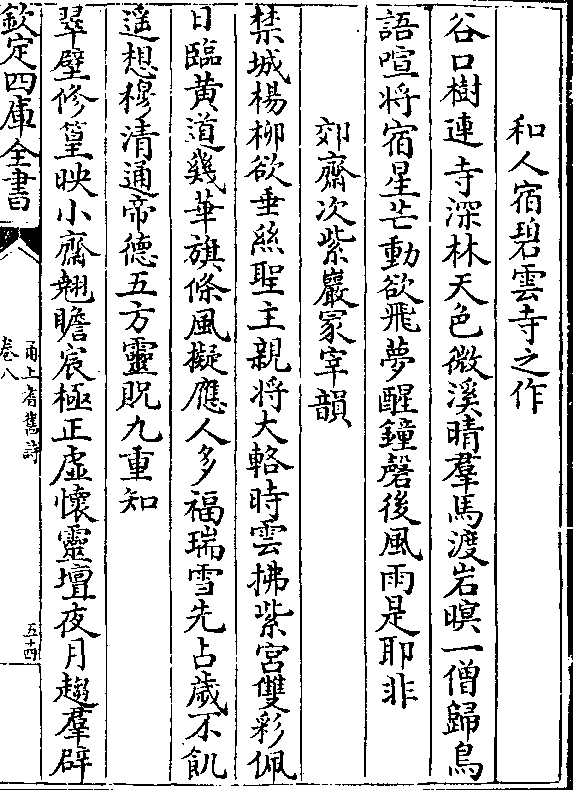 和人宿碧雲寺之作
谷口樹連寺深林天色微溪晴羣馬渡岩暝一僧歸鳥
語喧将宿星芒動欲飛夢醒鐘磬後風雨是耶非
郊齋次紫巖冡宰韻
禁城楊柳欲垂絲聖主親将大輅時雲拂紫宫雙彩佩
日臨黄道幾華旗條風擬應人多福瑞雪先占歳不飢
遥想穆清通帝德五方靈貺九重知
翠壁修篁映小齋翹瞻宸極正虚懷靈壇夜月趨羣辟
欽定四庫全書
甬上耆舊詩
卷八
五十四